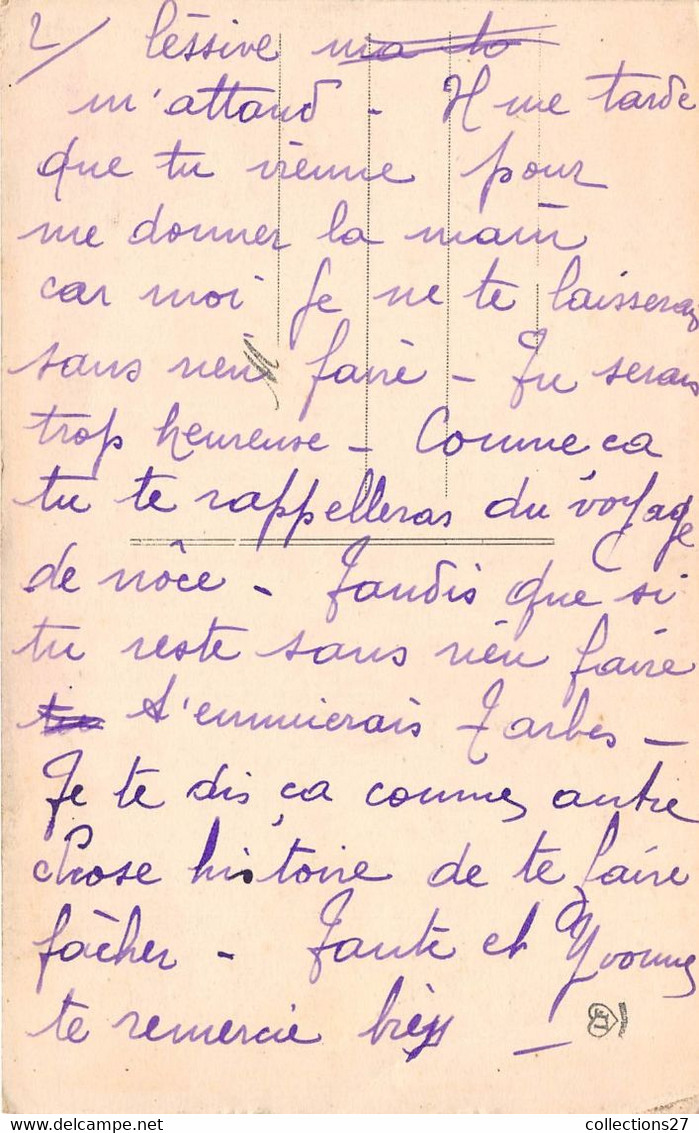 2/ léssive ma to
m'attand - Il me tarde
que tu vienne pour
me donner la main
car moi je ne te laisserais
sans rien faire - Tu serais
trop heureuse - Comme ca
tu te rappelleras du voyage
de nôce - Tandis que si
tu reste sans rien faire
tu t'ennuierais Tarbes -
Je te dis ça comme autre
chose histoire de te faire
fâcher - Tante et Yvonne
te remercie bien -
collections27